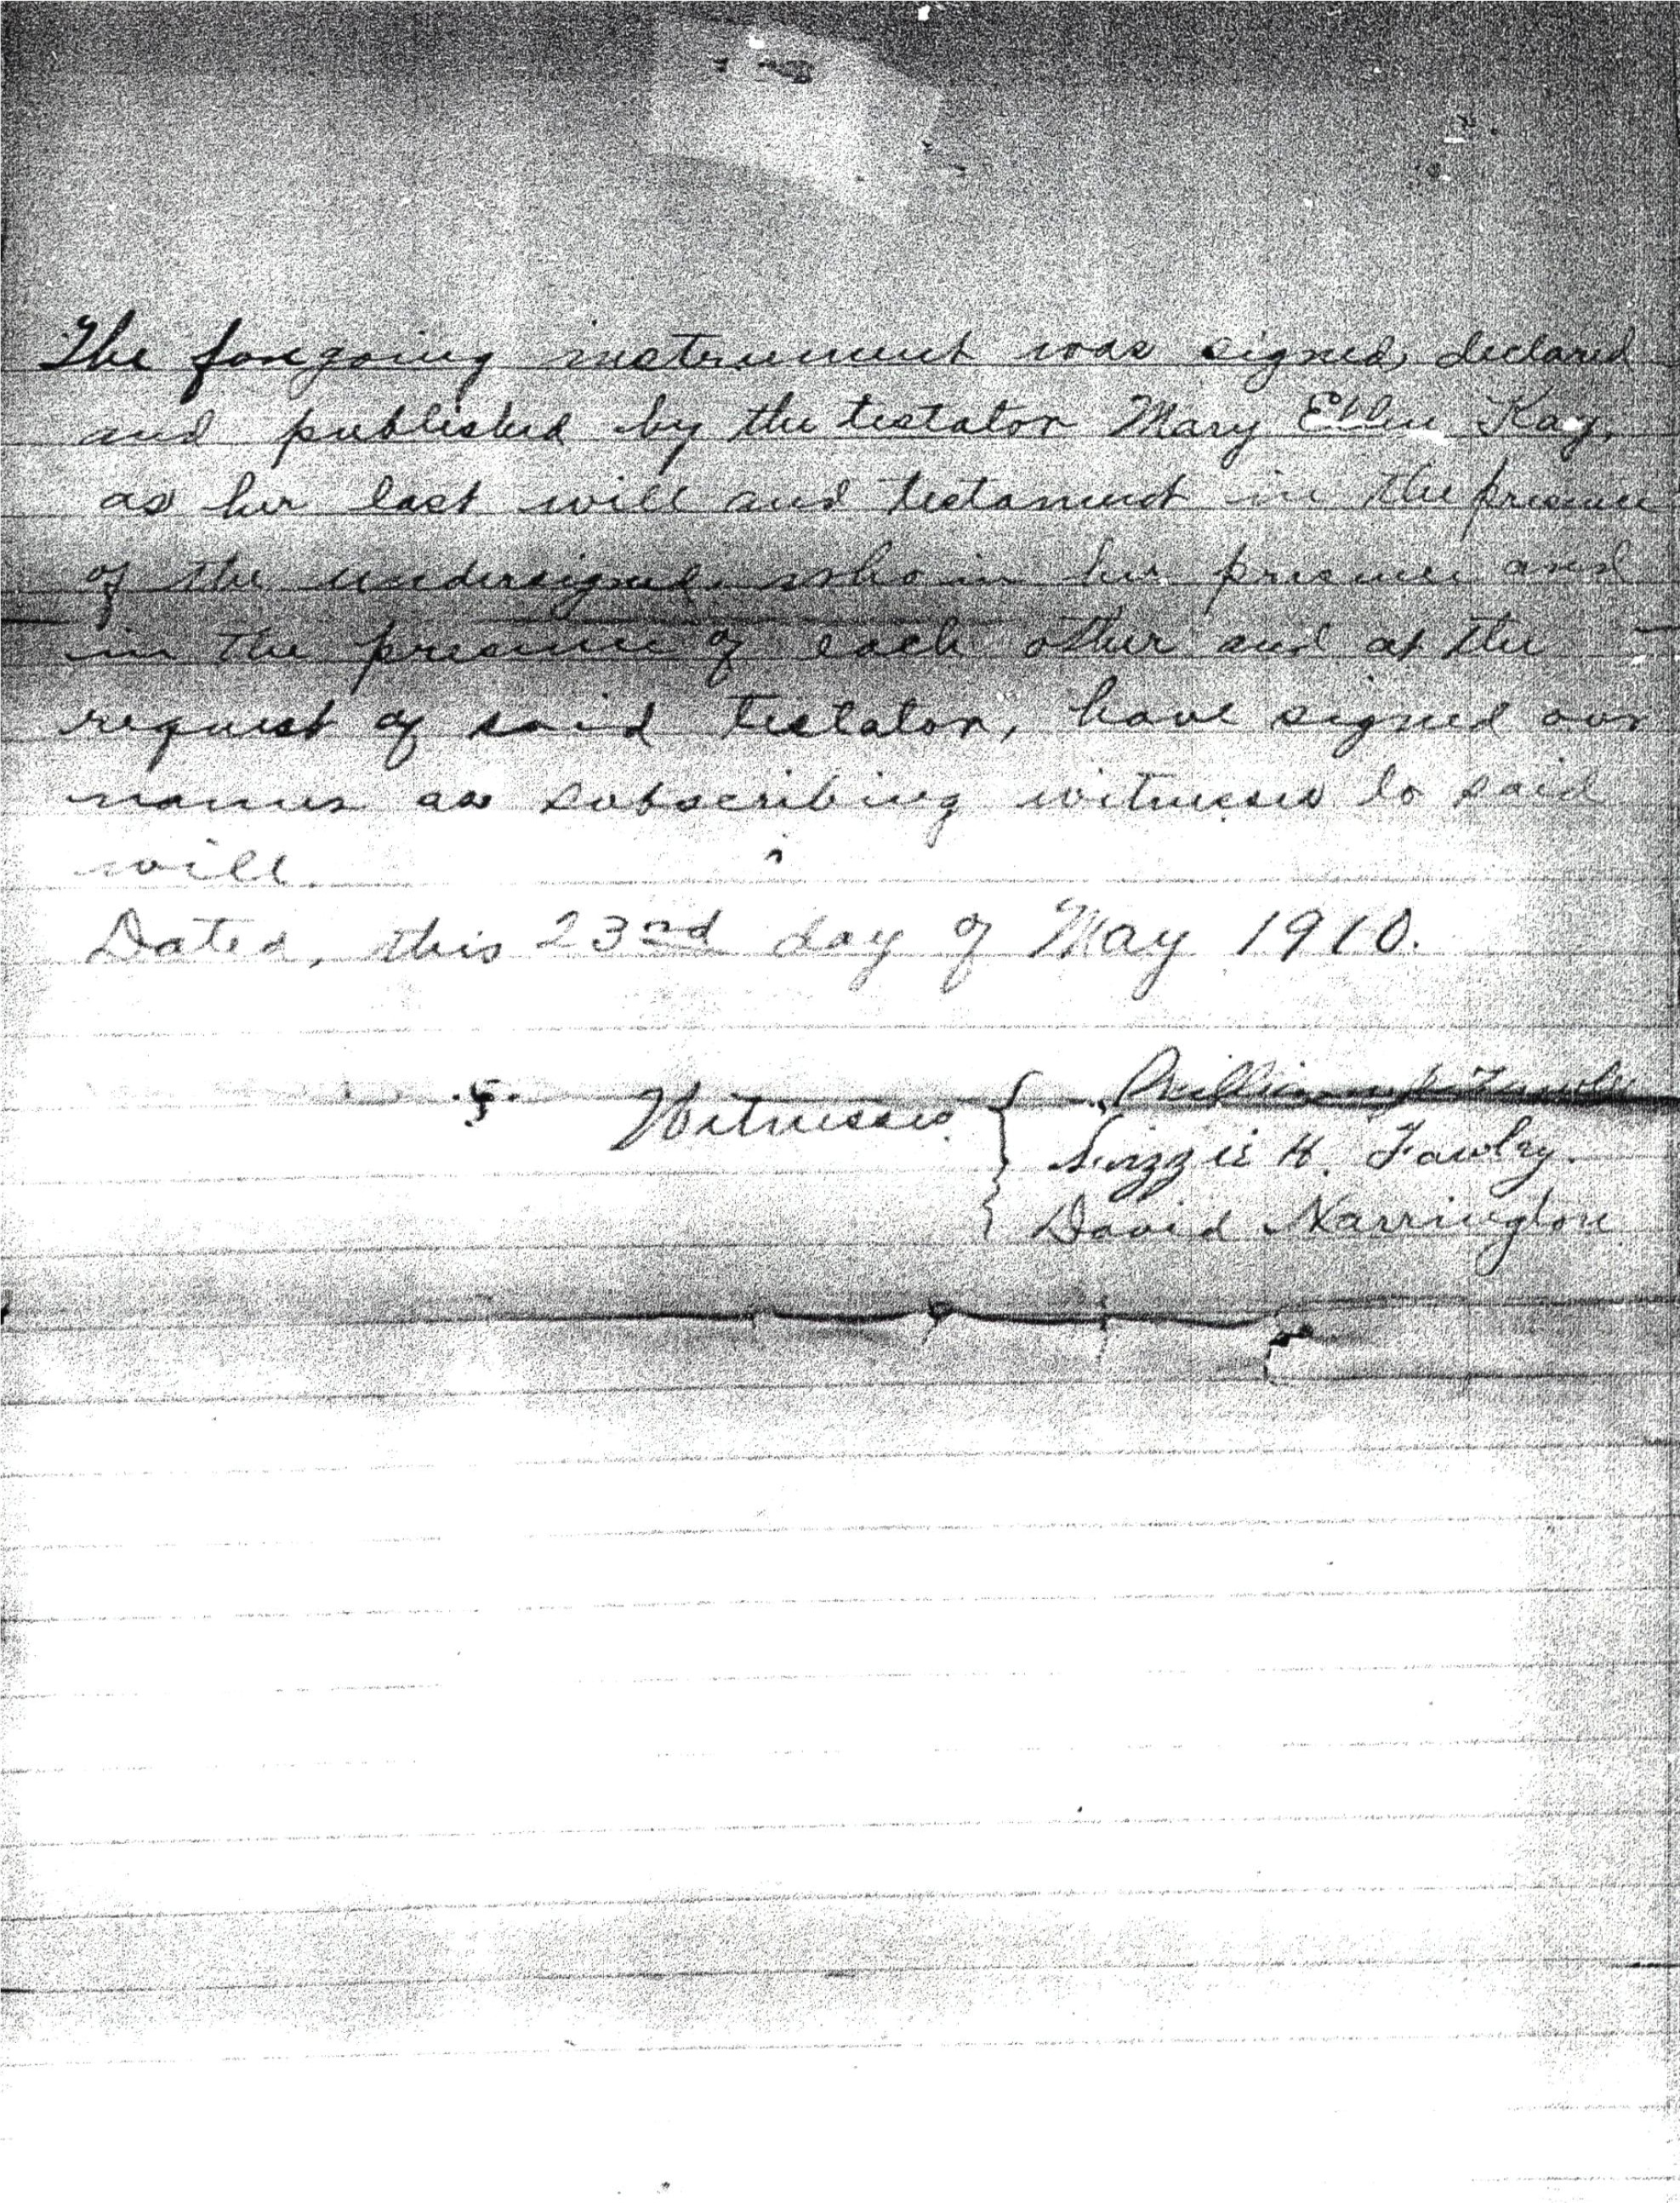 The foregoing instrument was signed, declared
and published by the testator Mary Ellen Kay,
as her last will and testament in the presence
of the undersigned, who in her presence and
in the presence of each other and at the
request of said testator, have signed our
names as subscribing witnesses to said
will.
Dated, this 23rd day of May 1910.
Witnesses { William
Lizzie H. Fawley.
David Narrington